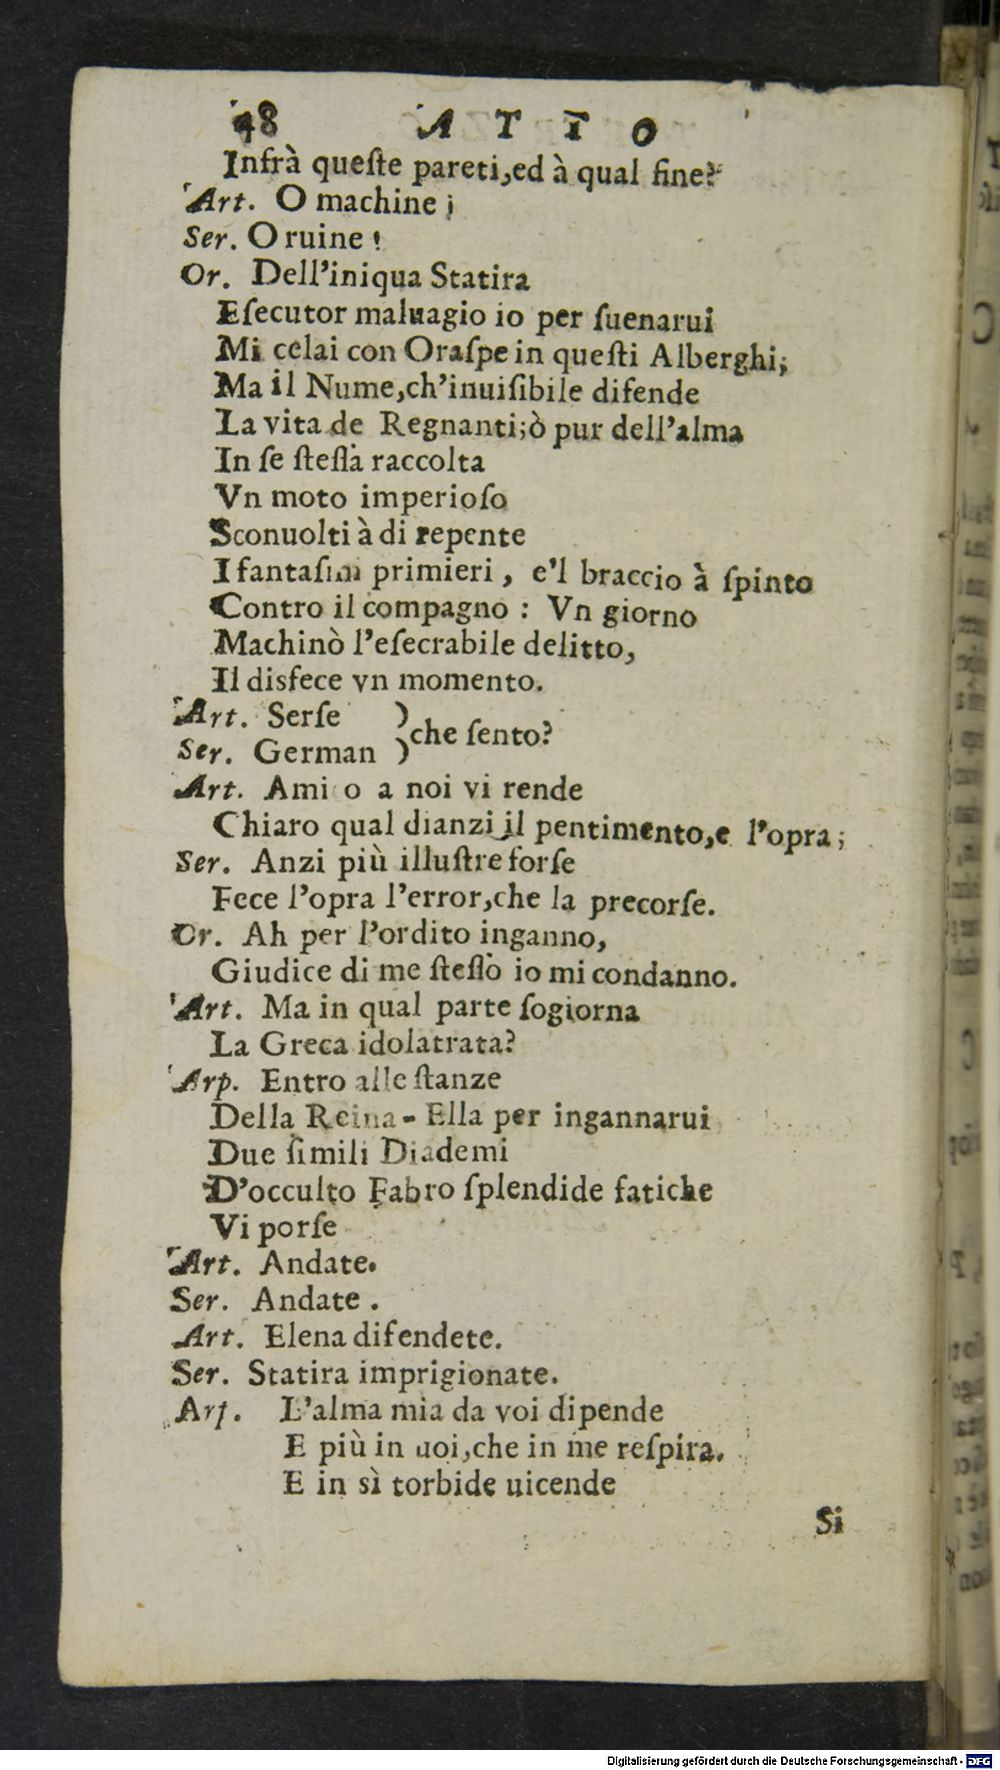 48 ATTO
Infrà queſte pareti,ed à qual fine?
Art. O machine ¡
Ser. O ruine !
Or. Dell'iniqua Statira
Eſecutor maluagio io per ſuenarui
Mi celai con Oraſpe in queſti Alberghi;
Ma il Nume,ch'inuiſibile difende
La vita de Regnanti;ò pur dell'alma
In ſe ſteſſa raccolta
Vn moto imperioſo
Sconuolti à di repente
I fantaſmi primieri, e'l braccio à ſpinto
Contro il compagno : Vn giorno
Machinò l'eſecrabile delitto,
Il disfece vn momento.
Art. Serſe )
che ſento?
Ser. German )
Art. Amico a noi vi rende
Chiaro qual dianzi il pentimento,e l'opra;
Ser. Anzi più illuſtre forſe
Fece l'opra l'error,che la precorſe.
Or. Ah per l'ordito inganno,
Giudice di me ſteſſo io mi condanno.
Art. Ma in qual parte ſogiorna
La Greca idolatrata?
Arp. Entro alle ſtanze
Della Reina - Ella per ingannarui
Due ſimili Diademi
D'occulto Fabro ſplendide fatiche
Vi porſe
Art. Andate.
Ser. Andate .
Art. Elena difendete.
Ser. Statira imprigionate.
Arſ. L'alma mia da voi dipende
E più in uoi,che in me reſpira.
E in sì torbide uicende
Si
Digitalisierung gefördert durch die Deutsche Forschungsgemeinschaft - DFG